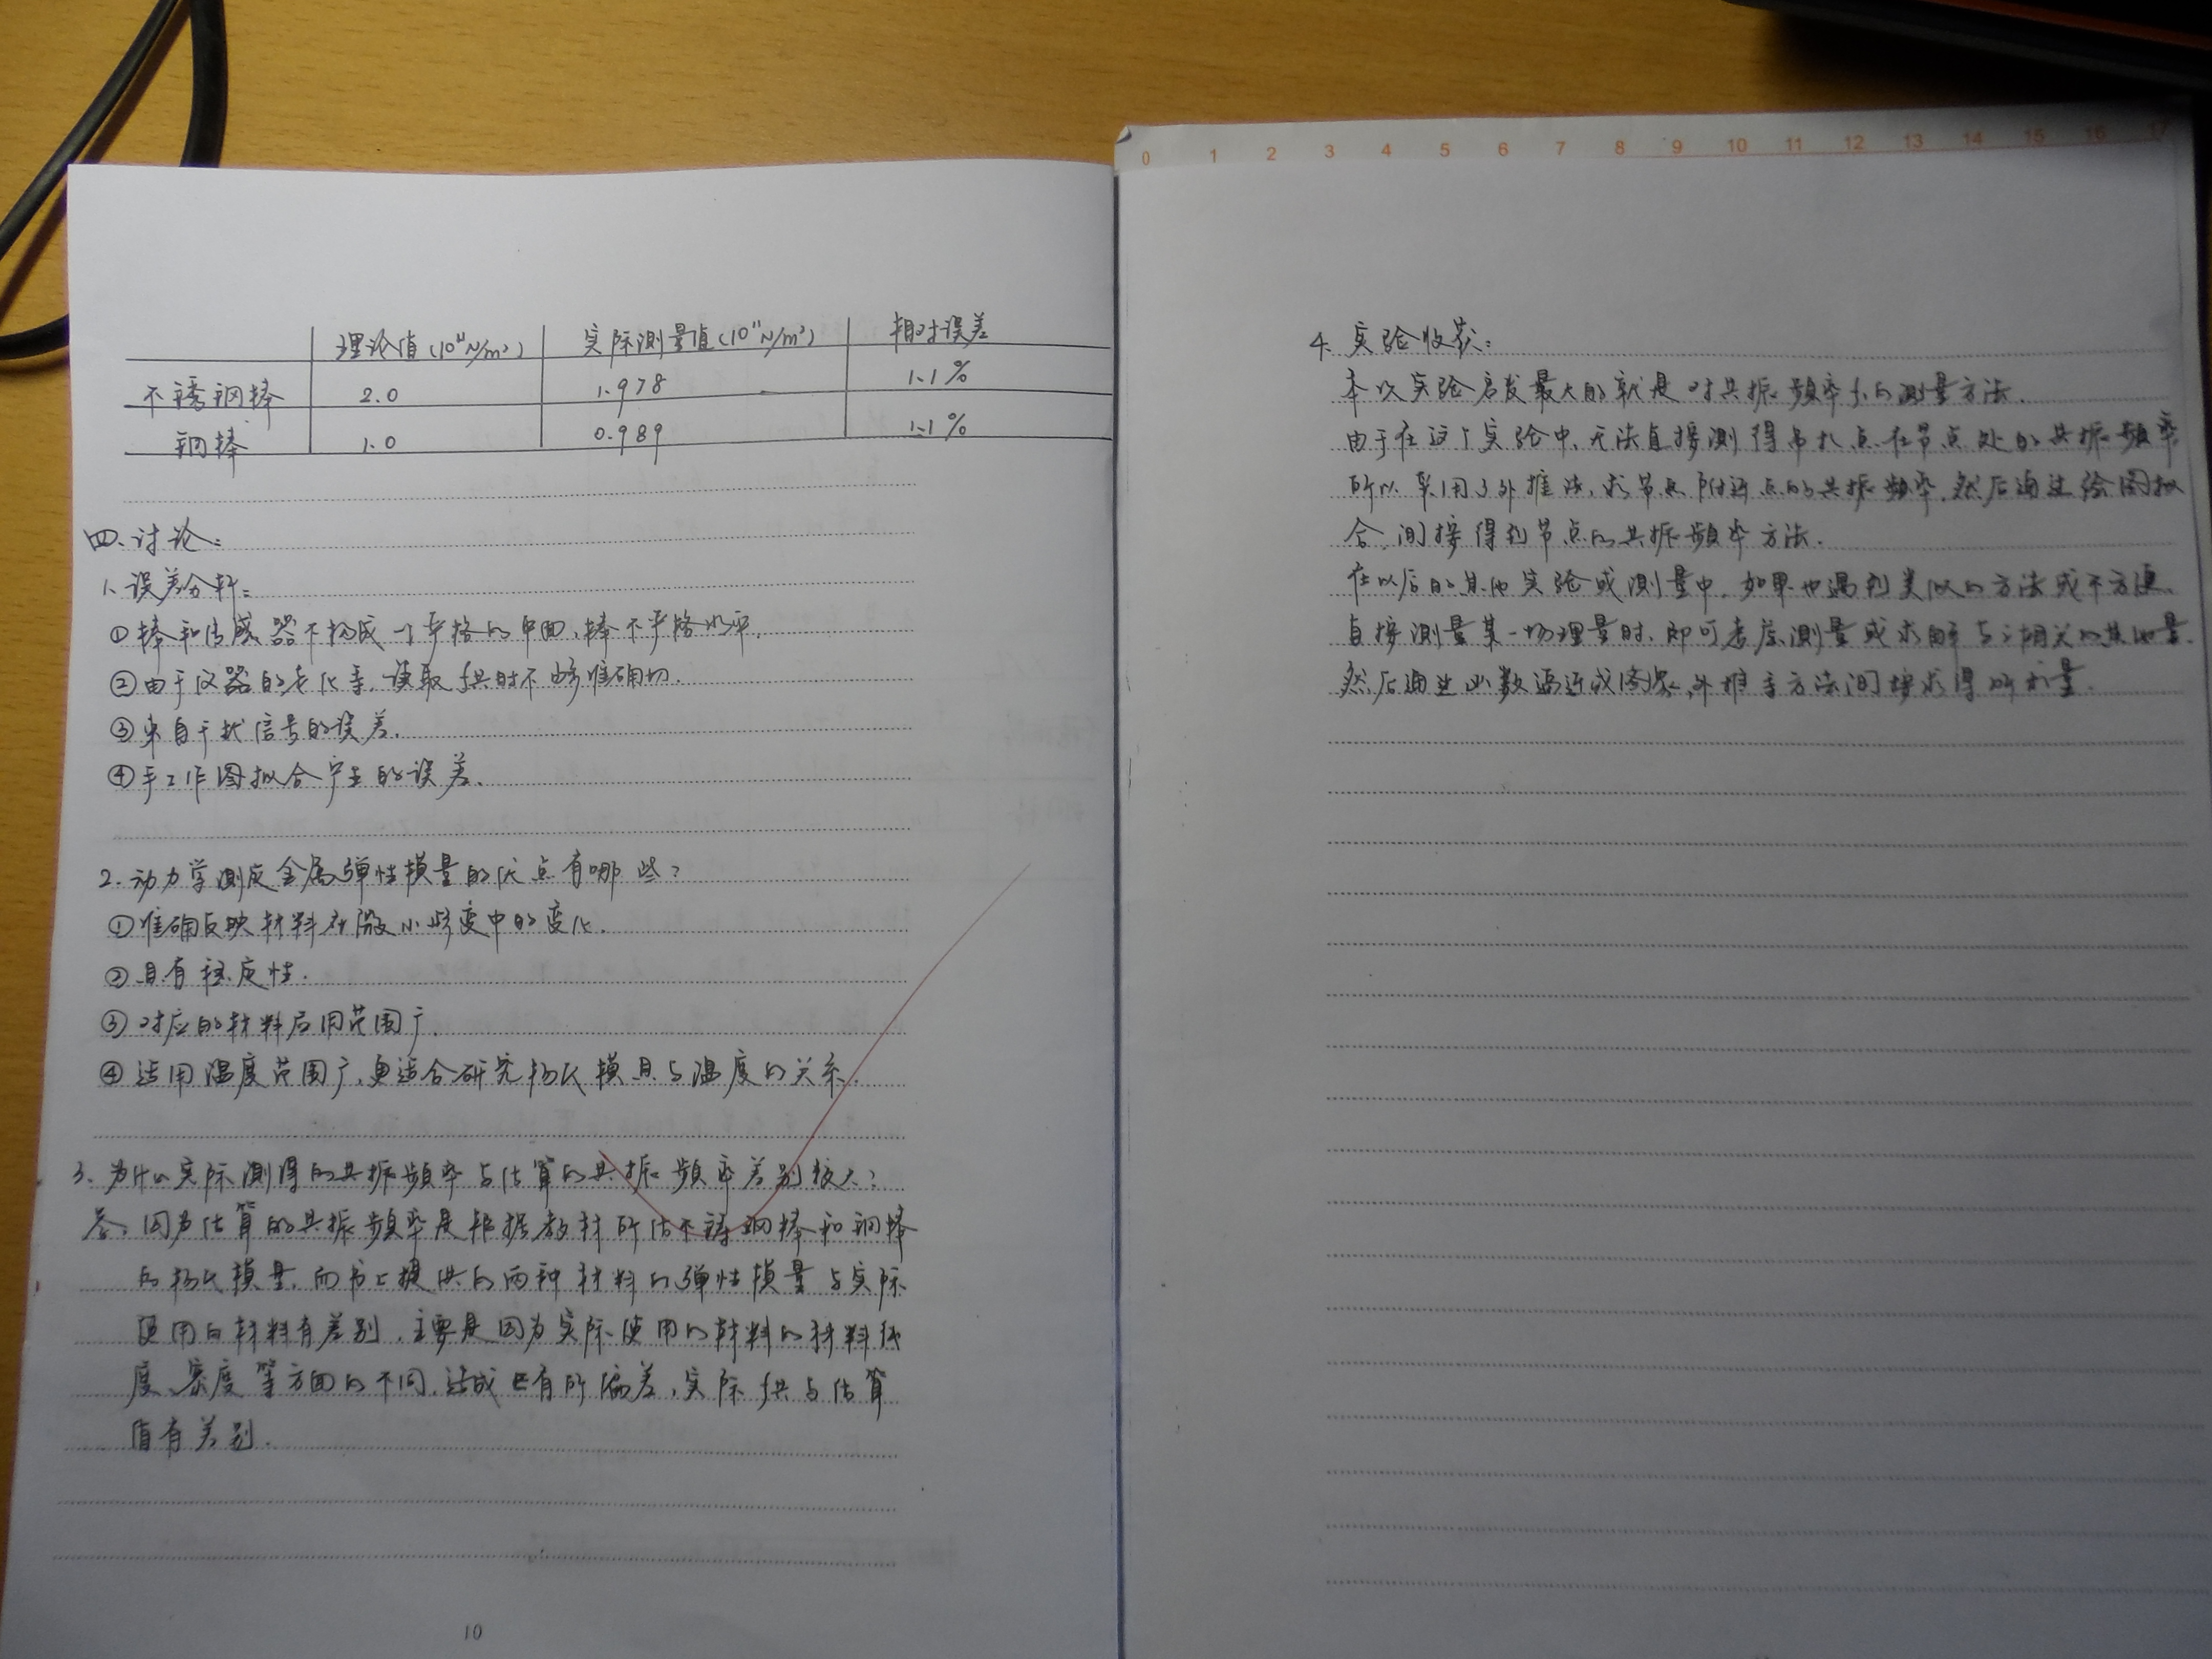 理论值(10¹¹N/m²) 实际测量值(10¹¹N/m²) 相对误差
不锈钢棒 2.0 1.978 1.1%
铜棒 1.0 0.989 1.1%
四、讨论:
1、误差分析:
①棒和传感器不构成一个严格的平面,棒不严格水平.
②由于仪器的老化等,读取f共时不够准确切.
③来自干扰信号的误差.
④手工作图拟合产生的误差.
2.动力学测定金属弹性模量的优点有哪些?
①准确反映材料在微小形变中的变化.
②具有稳定性.
③对应的材料应用范围广.
④适用温度范围广,更适合研究杨氏模量与温度的关系.
3、为什么实际测得的共振频率与估算的共振频率差别较大?
答:因为估算的共振频率是根据教材所估不锈钢棒和铜棒
的杨氏模量,而书上提供的两种材料的弹性模量与实际
使用的材料有差别,主要是因为实际使用的材料的材料纯
度、密度等方面的不同,造成E有所偏差,实际f共与估算
值有差别.
10
0 1 2 3 4 5 6 7 8 9 10 11 12 13 14 15 16 17
4、实验收获:
本次实验启发最大的就是对共振频率f的测量方法.
由于在这个实验中,无法直接测得吊扎点在节点处的共振频率
所以采用了外推法,求节点附近点的共振频率,然后通过绘图拟
合,间接得到节点的共振频率方法.
在以后的其他实验或测量中,如果也遇到类似的方法或不方便
直接测量某一物理量时,即可考虑测量或求解与之相关的其他量.
然后通过函数逼近或图象,外推等方法间接求得所求量.